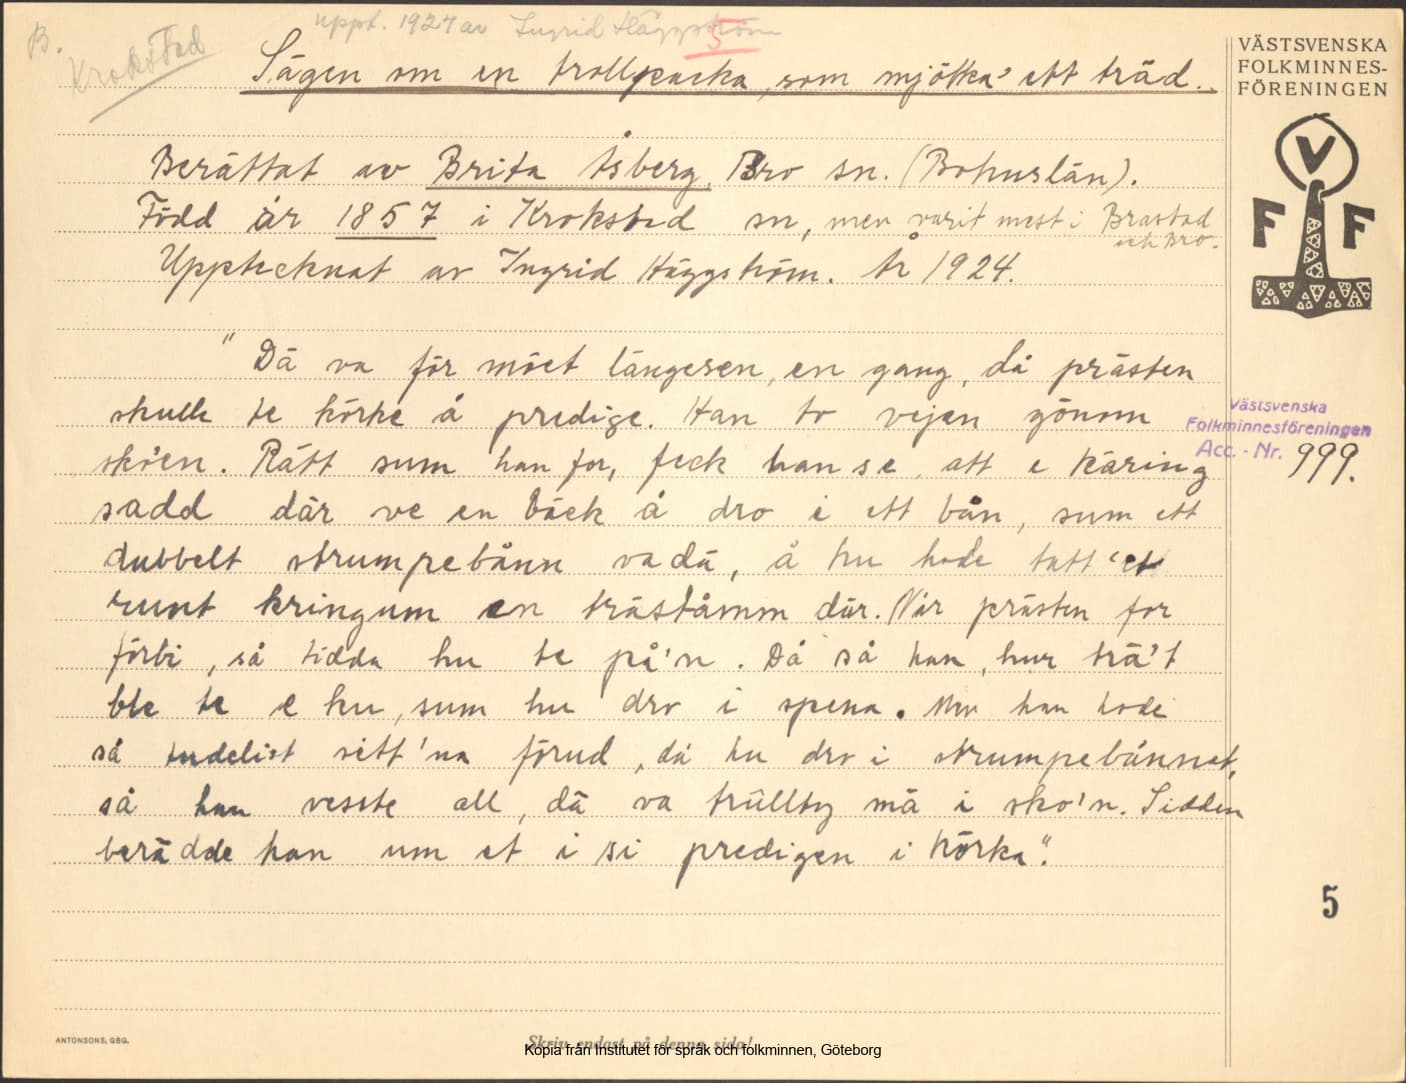 B.
Krokstad
uppt. 1924 av Ingrid Häggström
5
Sägen om en trollpacka, som mjölka' ett träd.
VÄSTSVENSKA
FOLKMINNES-
FÖRENINGEN
V
F F
Berättat av Brita Åsberg, Bro sn. (Bohuslän).
Född år 1857 i Krokstad sn, men varit mest i Brastad
och Bro.
Upptecknat av Ingrid Häggström. År 1924.
"Dä va för möet längesen, en gang, då prästen
skulle te körke å predige. Han to vejen gönom
sko'en. Rätt sum han for, feck han se, att e käring
Västsvenska
Folkminnesföreningen
Acc. - Nr. 999.
sadd där ve en bäck å dro i ett bån, sum ett
dubbelt strumpebånn va dä, å hu hode tatt 'et
runt kringum en trästämm där. När prästen for
förbi, så tidda hu te på'n. Då så han, hur trä't
ble te e ku, sum hu dro i spena. Men han hode
så tudelist sitt'na förud, då hu dro i strumpebånnet,
så han vesste all, dä va trüllty mä i sko'n. Sidden
berädde han um et i si predigen i körka".
5
ANTONSONS, GBG.
Skriv endast på denna sida!
Kopia från Institutet för språk och folkminnen, Göteborg